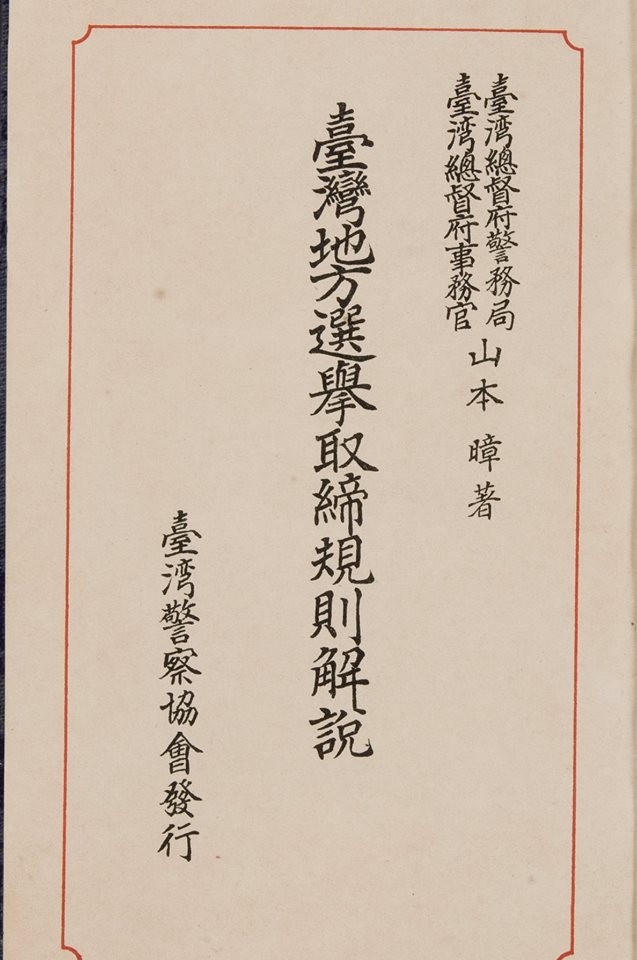 臺湾總督府警務局
臺湾總督府事務官
山本暲著
臺灣地方選擧取締規則解説
臺湾警察協會發行